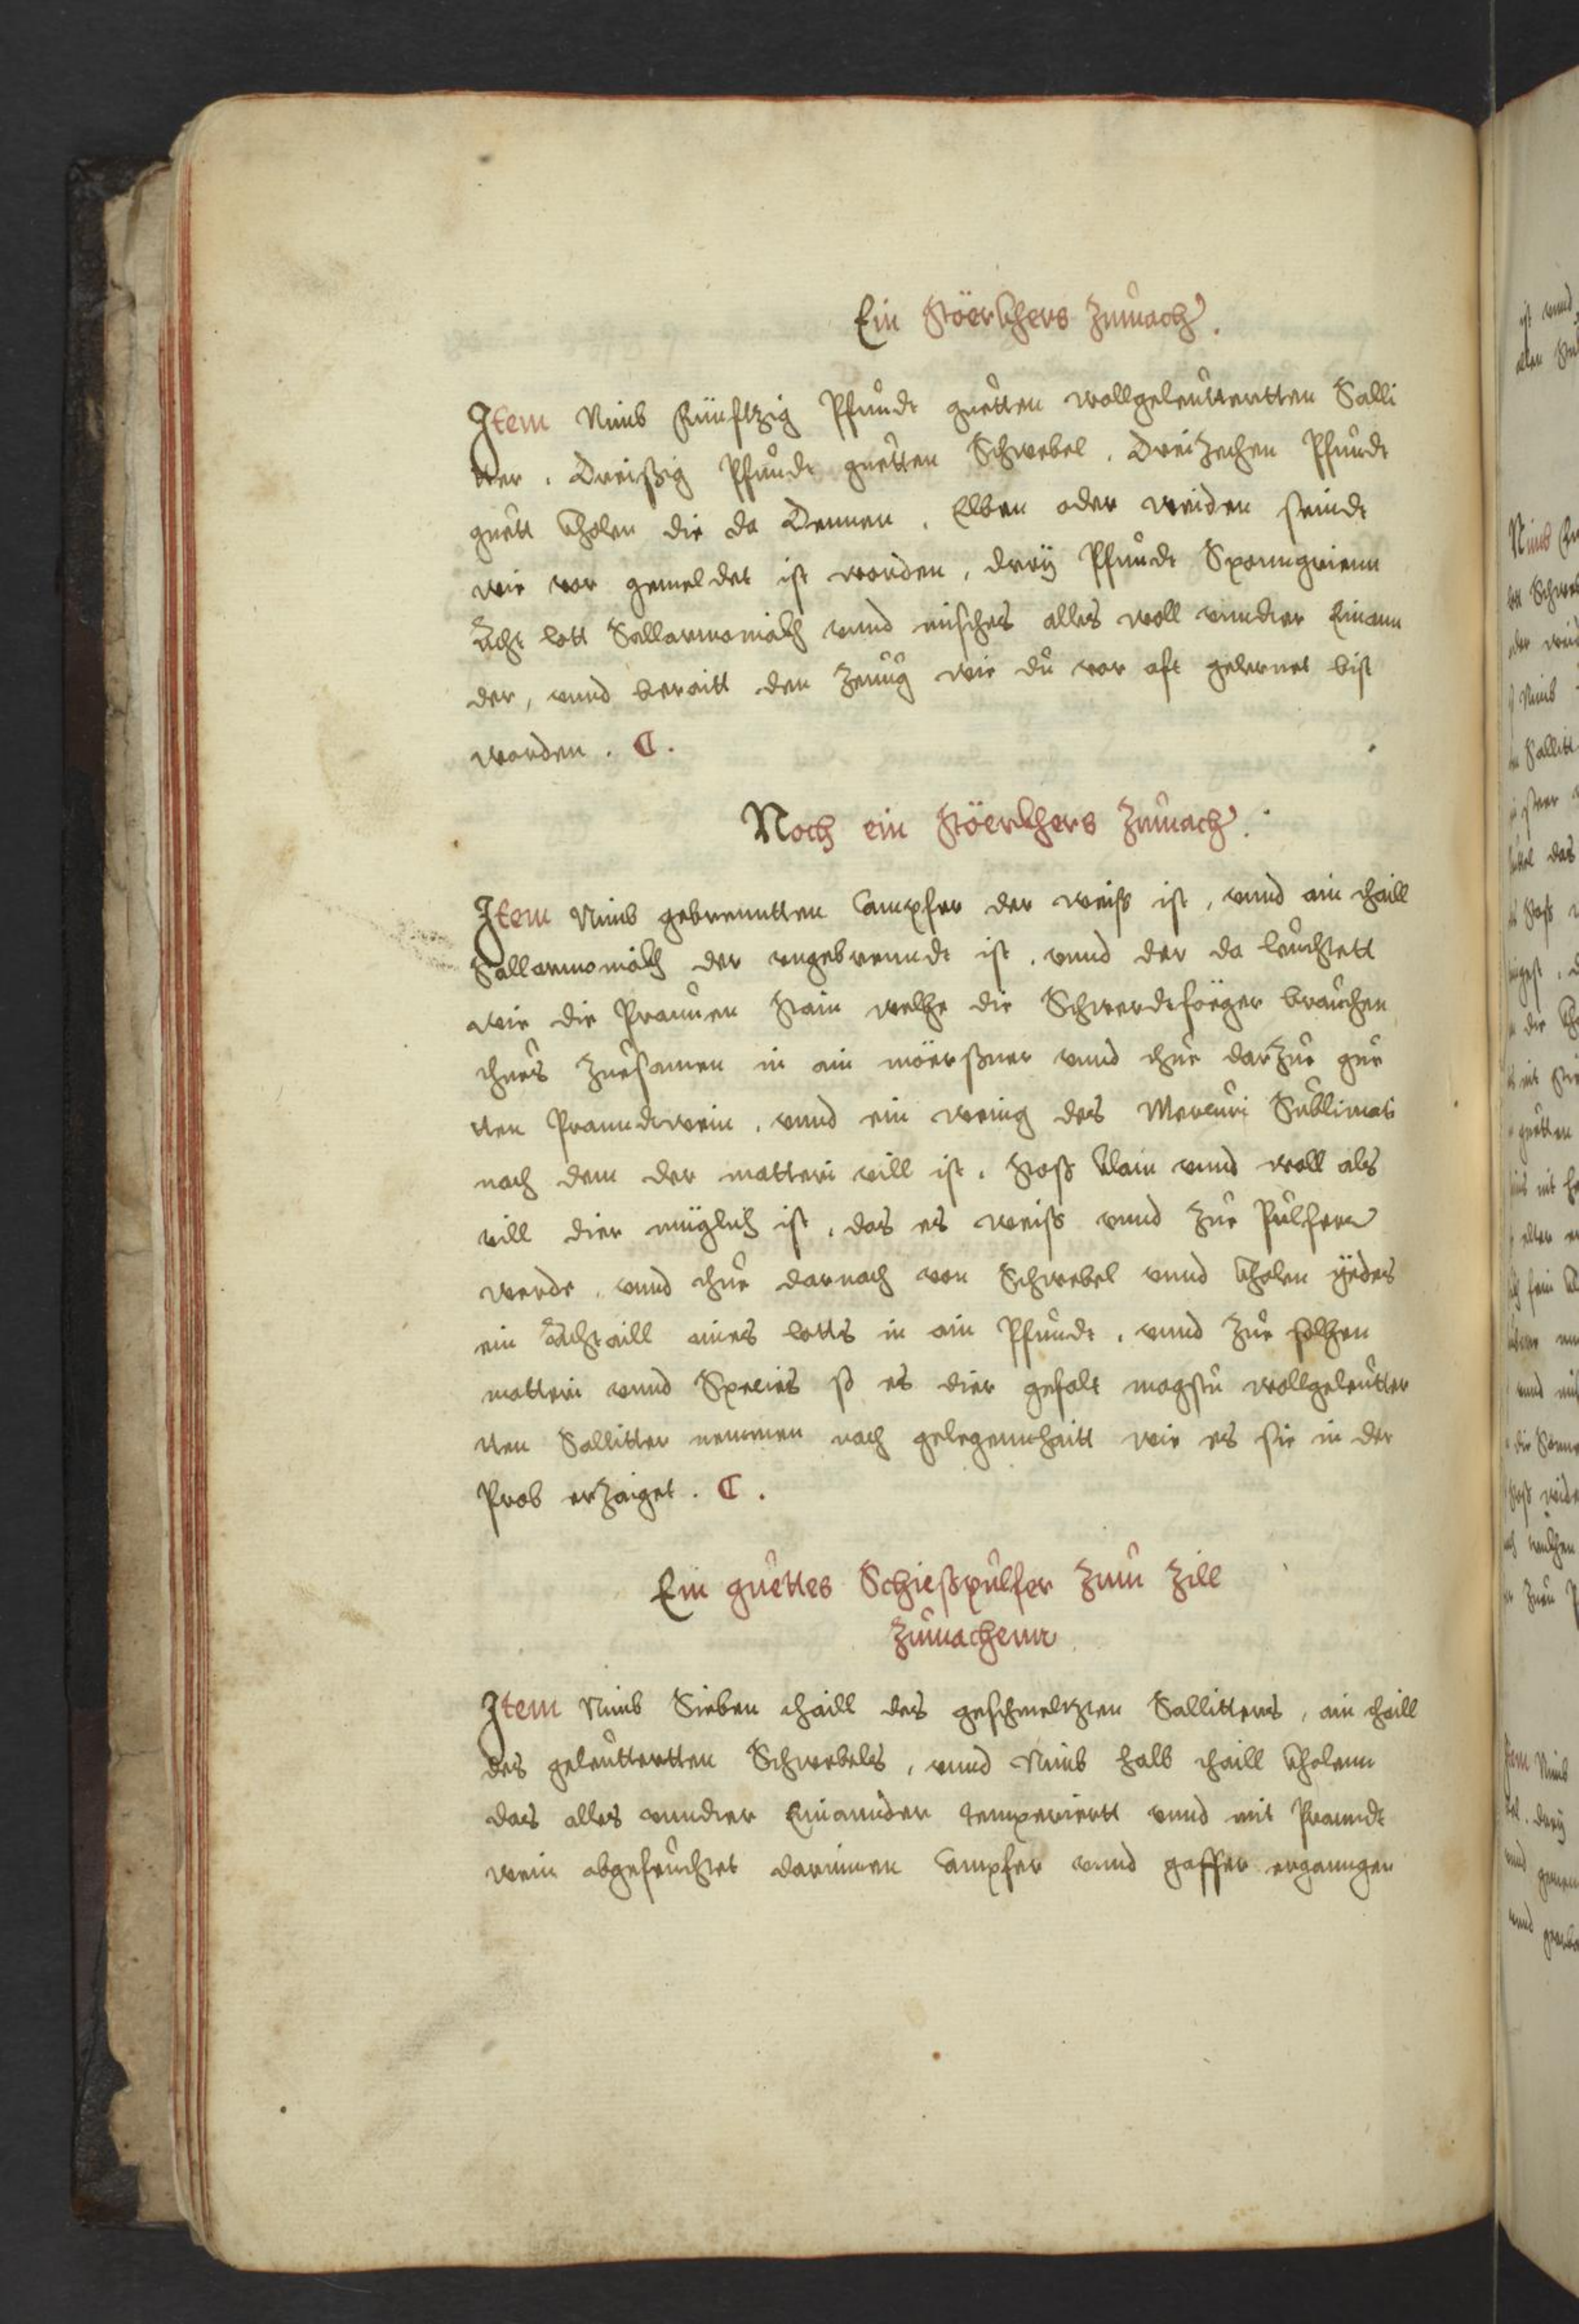 Ein störkhers Zumach.
Item Nimb Fünftzig Pfundt guetten wollgeleutterten Salli
tter. Dreißig Pfundt guetten Schwebel. Dreizechen Pfundt
guett Kholen die da Dennen. Elben oder weiden seindt
wie vor gemeldet ist worden, dreÿ Pfundt Sponngrienn
Acht lott Sallarmoniakh vnnd misches alles woll vnndter Einann
der, vnnd beraitt den Zeuug wie du vor oft gelernet bist
worden. C.
Noch ein störkhers Zumach.
Item Nimb gebrenntten Campfer der weiß ist, vnnd ain thaill
Sallarmoniakh der vngebrenndt ist. vnnd der da leuchtett
wie die Praunen stain welche die Schwerdtföger brauchen
thues Zuesamen in ain mörßner vnnd thue darzue gue
tten Pranndtwein. vnnd ein wenig des Mercuri Sublimati
nach dem der matteri vill ist. stoß klain vnnd woll als
vill dier müglich ist. das es weiß vnnd zue Pulfer
werde. vnnd thue darnach von Schwebel vnnd Kholen yedes
ein Achtaill aines lotts in ain Pfundt. vnnd zue solhen
matteri vnnd Species so es dier gefalt magstu wollgeleutter
tten Sallitter nemmen nach gelegennhaitt wie es sie in der
Prob erzaiget. C.
Ein guettes Schießpulfer zum Zill
Zumachenn
Item Nimb Sieben thaill des geschmeltzten Sallitters, ain thaill
des geleutterten Schwebels, vnnd Nimb halb thaill Kholenn
das alles vnndter Einannder temperiertt vnnd mit Pranndt
wein abgefeuchtet darinnen Campfer vnnd gaffer erganngen